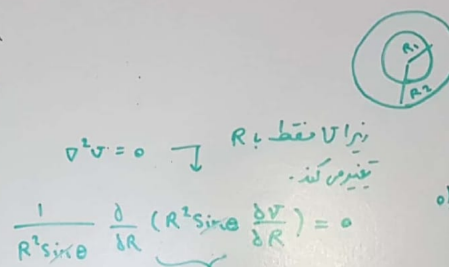 R₁
R₂
زیرا V فقط با R
تغییر می کند.
∇²V = 0
1/(R² Sinθ) ∂/∂R (R² Sinθ ∂V/∂R) = 0